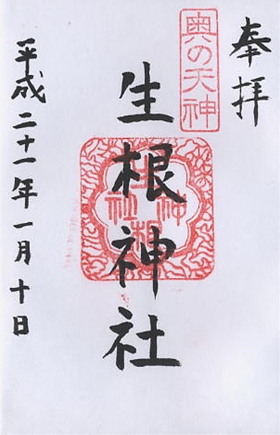 奉拝
奥の天神
生根神社
生根神社
平成二十一年一月十日